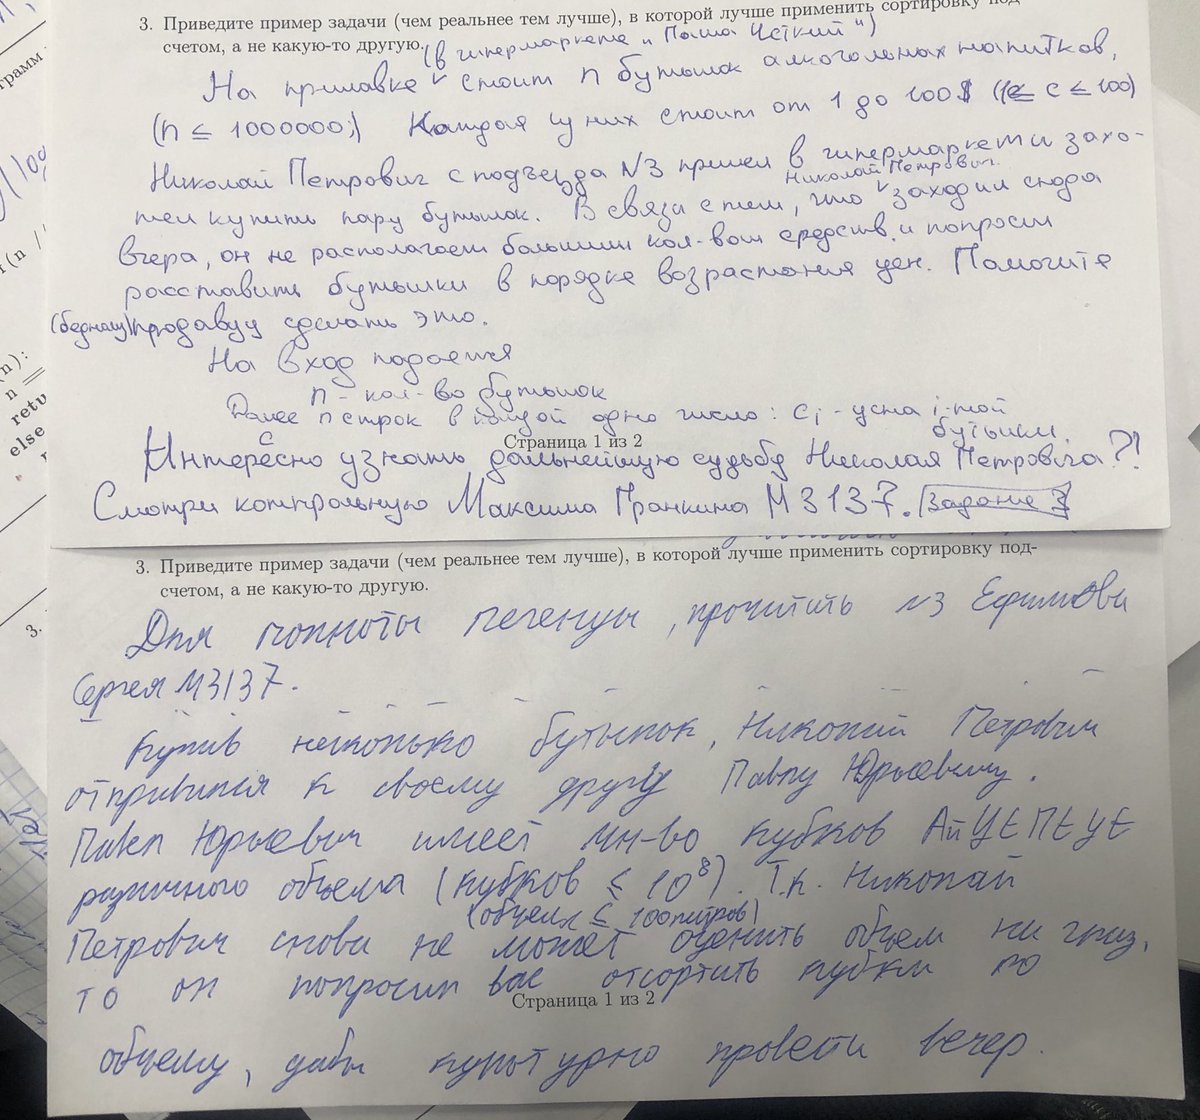 3. Приведите пример задачи (чем реальнее тем лучше), в которой лучше применить сортировку под-
счетом, а не какую-то другую.
(в гипермаркете "Паша Чёткий")
На прилавке стоит n бутылок алкогольных напитков,
(n ≤ 1000000;) Каждая из них стоит от 1 до 100$ (1 ≤ c ≤ 100)
Николай Петрович с подъезда N3 пришел в гипермаркет и захо-
Николай Петрович
тел купить пару бутылок. В связи с тем, что заходил сюда
вчера, он не располагает большим кол-вом средств и попросил
расставить бутылки в порядке возрастания цен. Помогите
(бедному) продавцу сделать это.
На вход подается
n - кол-во бутылок
Далее n строк в каждой одно число: ci - цена i-той
бутылки.
Страница 1 из 2
Интересно узнать дальнейшую судьбу Николая Петровича?!
Смотри контрольную Максима Гранкина М3137. Задание 3
3. Приведите пример задачи (чем реальнее тем лучше), в которой лучше применить сортировку под-
счетом, а не какую-то другую.
Для полноты легенды, прочитать N3 Ефимова
Сергея М3137.
Купив несколько бутылок, Николай Петрович
отправился к своему другу Павлу Юрьевичу.
Павел Юрьевич имеет мн-во кубков АйЦЕПЕЦЕ
различного объема (кубков ≤ 10⁸). Т.к. Николай
(объем ≤ 100 литров)
Петрович снова не может оценить объем на глаз,
то он попросил вас отсортить кубки по
Страница 1 из 2
объему, дабы культурно провести вечер.
3.
грамм
(n):
retu
else